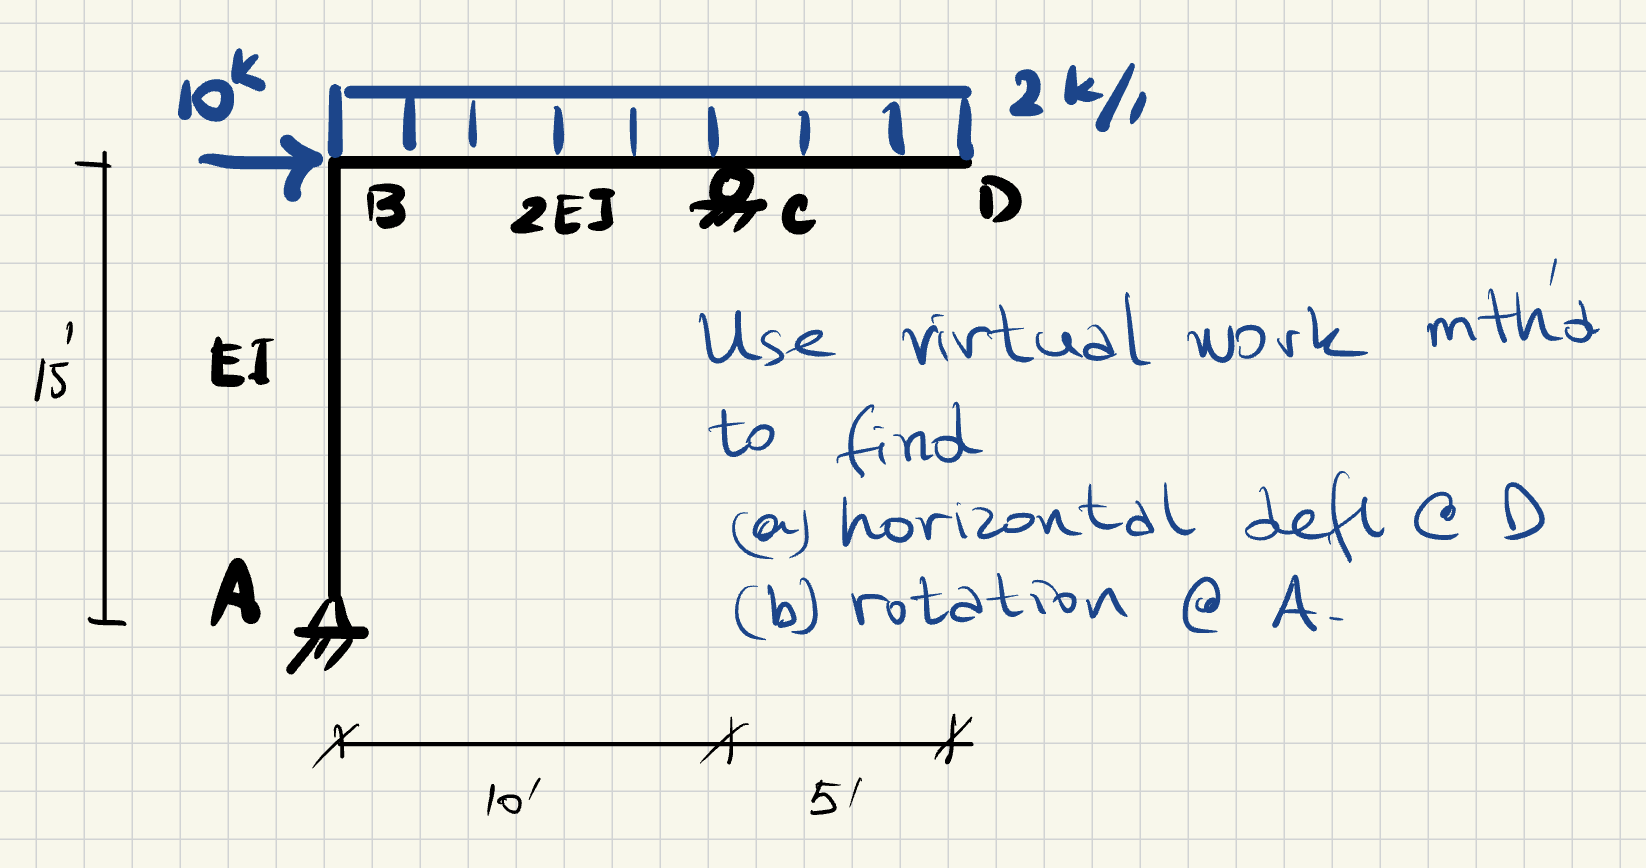 10k
2 k/'
B
2EI
C
D
EI
15'
A
Use virtual work mth'd
to find
(a) horizontal defl @ D
(b) rotation @ A.
10'
5'